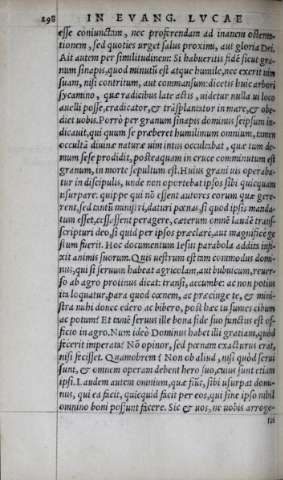 298 IN EVANG. LVCAE
esse coniunctam, nec proferendam ad inanem ostenta-
tionem, sed quoties urget salus proximi, aut gloria Dei.
Ait autem per similitudinem: Si habueritis fidē sicut gra-
num sinapis, quod minutū est atque humile, nec exerit uim
suam, nisi contritum, aut commansum: dicetis huic arbori
sycamino, quæ radicibus late actis, uidetur nulla ui loco
auelli posse, eradicator, & trāsplantator in mare, & obe-
diet uobis. Porrò per granum sinapis dominus seipsum in-
dicauit, qui quum se præberet humilimum omnium, tamen
occultā diuinæ naturæ uim intus occulebat, quæ tum de-
mum sese prodidit, posteaquam in cruce comminutum est
granum, in morte sepultum est. Huius grani uis operaba-
tur in discipulis, unde non oportebat ipsos sibi quicquam
usurpare: quippe qui nō essent autores eorum quæ gere-
rent, sed tantū ministri, daturi pœnas si quod ipsis manda-
tum esset, cessassent peragere, cæterum omnē laudē trans-
scripturi deo, si quid per ipsos præclare, aut magnifice ge
stum fuerit. Hoc documentum Iesus parabola addita infi-
xit animis suorum. Quis uestrum est tam commodus domi-
nus, qui si seruum habeat agricolam, aut bubulcum, reuer-
so ab agro protinus dicat: transi, accumbe: ac non potius
ita loquatur, para quod cœnem, ac præcinge te, & mini-
stra mihi donec edero ac bibero, post hæc tu sumes cibum
ac potum? Et tamē seruus ille bona fide suo functus est of-
ficio in agro. Num ideo Dominus habet illi gratiam, quod
fecerit imperata? Nō opinor, sed pœnam exacturus erat,
nisi fecisset. Quamobrem? Non ob aliud, nisi quòd serui
sunt, & omnem operam debent hero suo, cuius sunt etiam
ipsi. Laudem autem omnium, quæ fiūt, sibi usurpat domi-
nus, qui ea facit, quicquid facit per eos, qui sine ipso nihil
omnino boni possunt facere. Sic & uos, ne uobis arroge-
tis